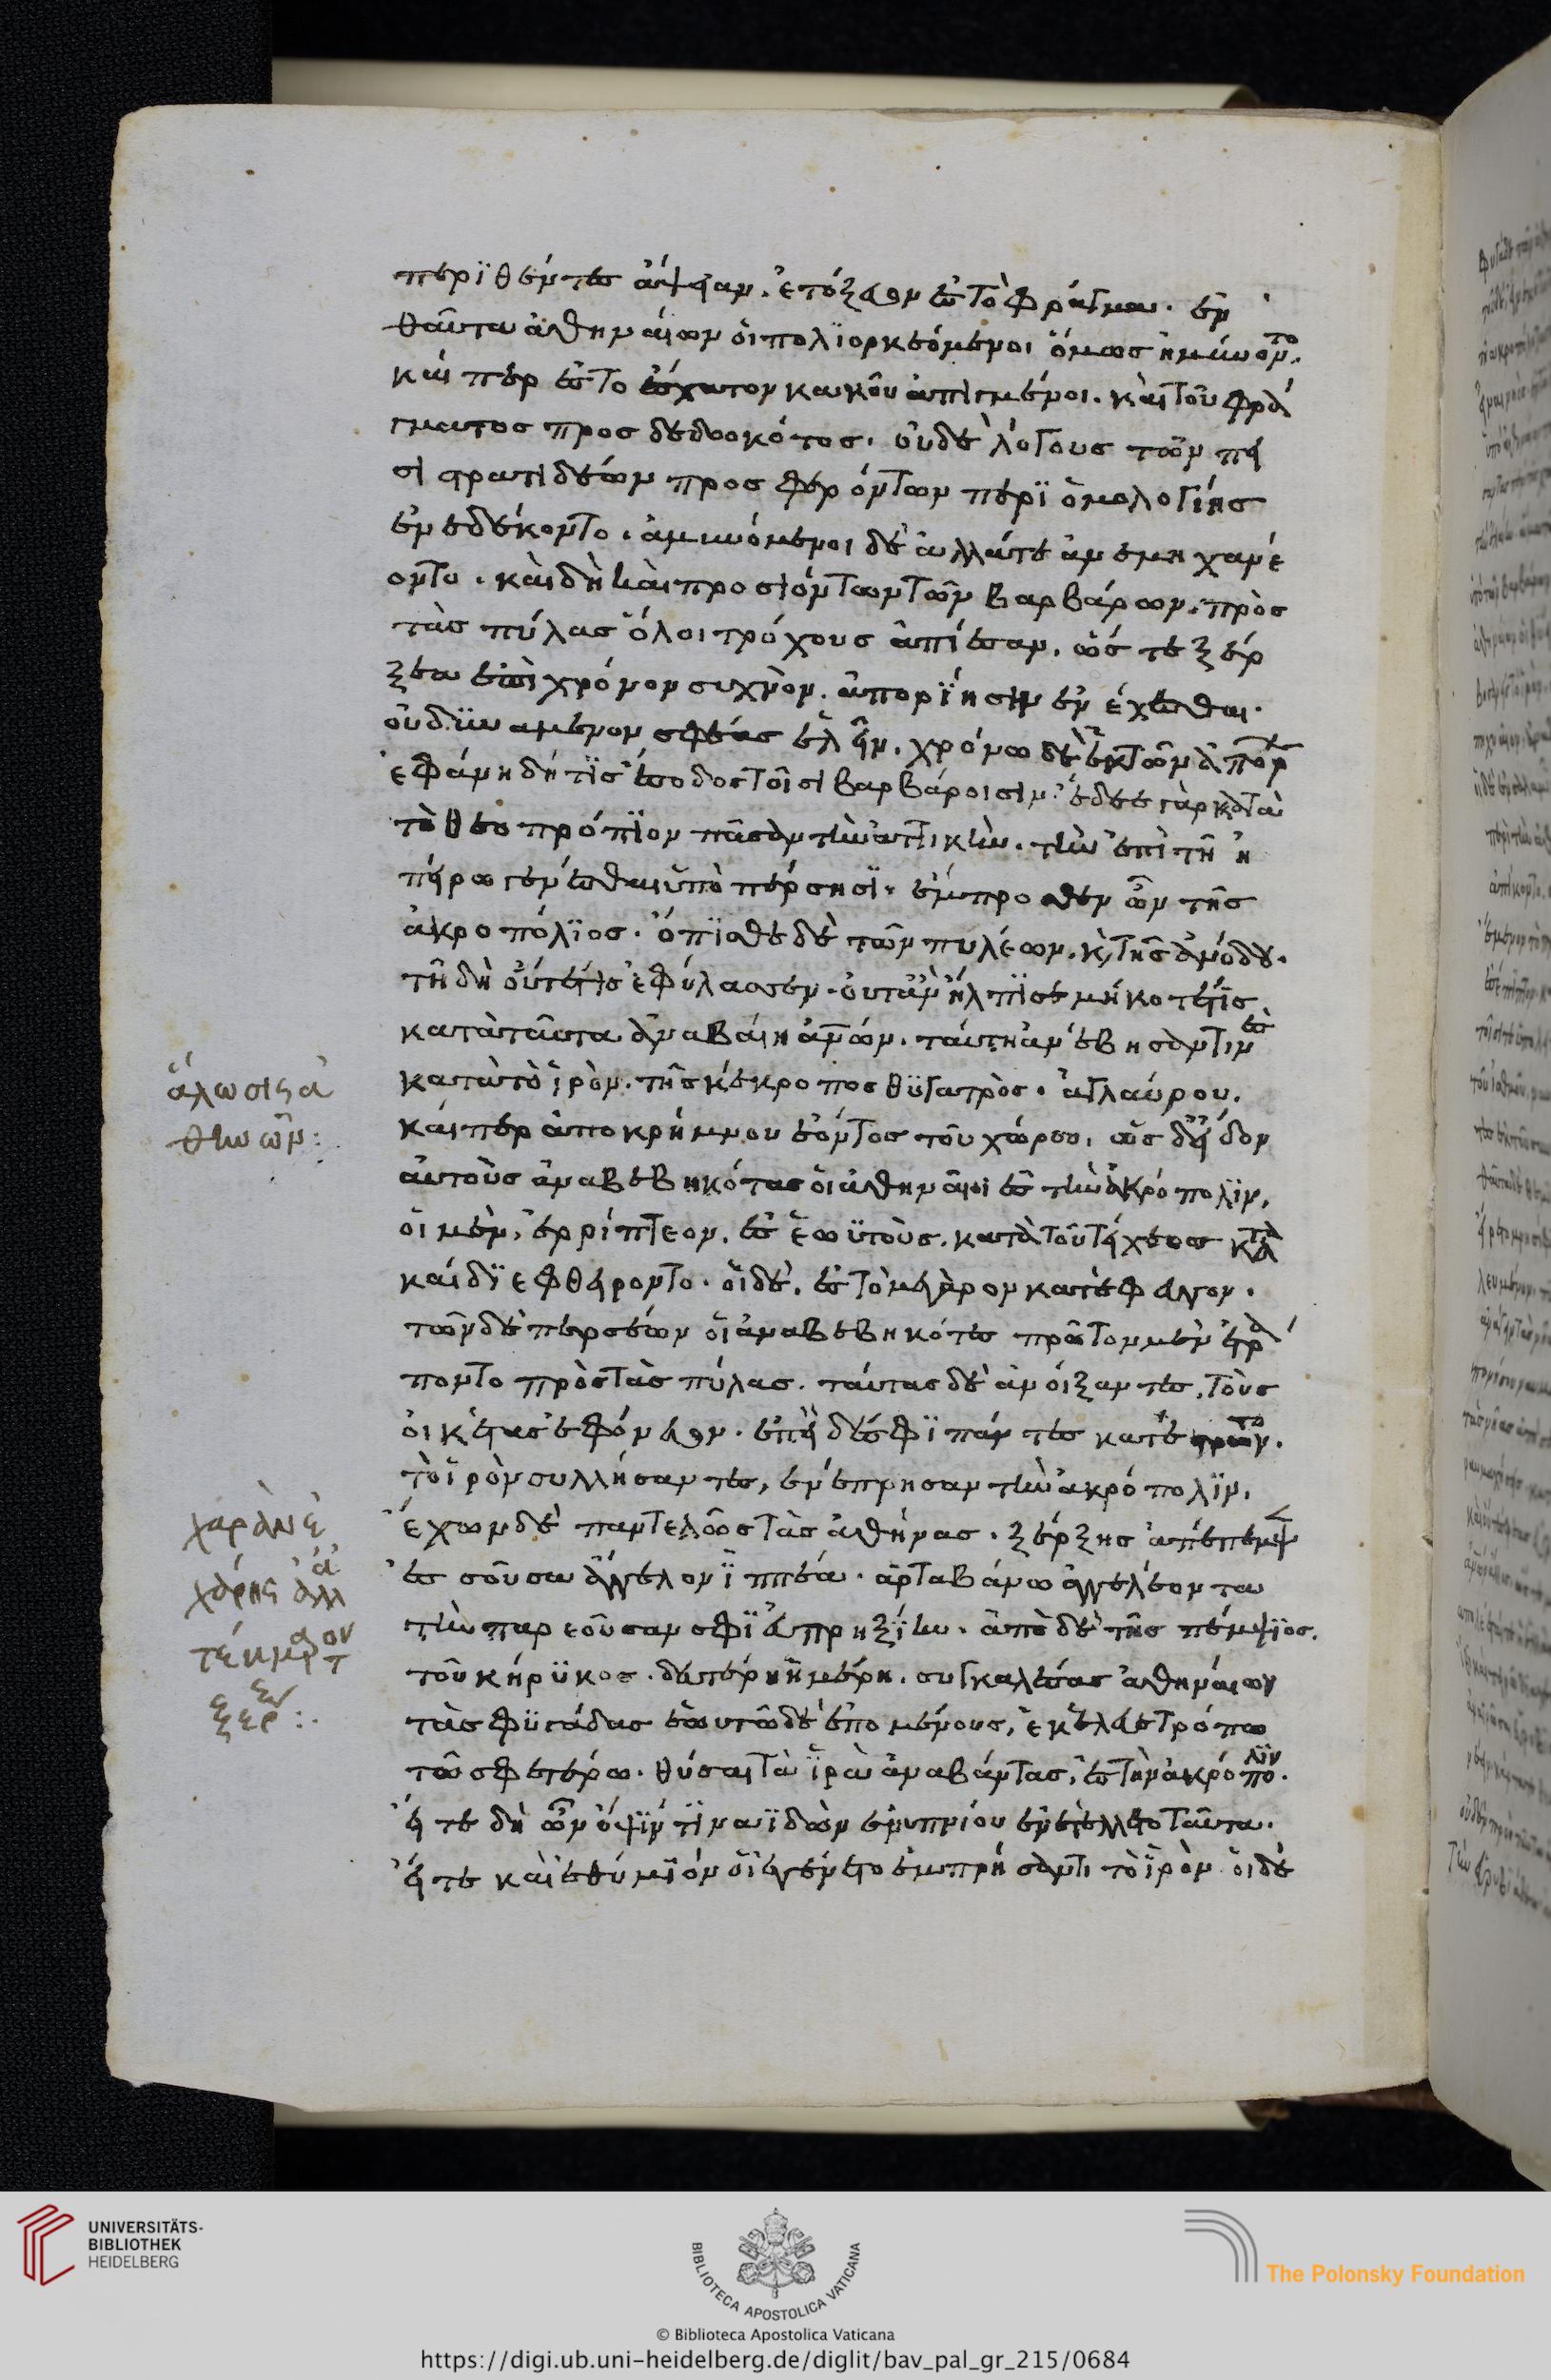 περιθέντες ἅψειαν. ἐτόξευον ἐς τὸ φράγμα. ἐν
θαῦτα ἀθηναίων οἱ πολιορκεόμενοι ὅμως ἠμύνοντο.
καίπερ ἐς τὸ ἔσχατον κακοῦ ἀπιγμένοι. καὶ τοῦ φρά
γματος προσδεδωκότος. οὐδὲ λόγους τῶν πει
σιστρατιδέων προσφερόντων περὶ ὁμολογίης
ἐνεδέκοντο. ἀμυνόμενοι δὲ ἄλλα τε ἀντεμηχανέ
οντο. καὶ δὴ καὶ προσιόντων τῶν βαρβάρων. πρὸς
τὰς πύλας ὀλοιτρόχους ἀπίεσαν. ὥστε ξέρ
ξεα ἐπὶ χρόνον συχνὸν. ἀπορίησιν ἐνέχεσθαι.
οὐ δυνάμενον σφέας ἑλεῖν. χρόνω δὲ ἐκ τῶν ἀπόρ
ἐφάνη δή τις ἔσοδος τοῖσι βαρβάροισιν. ἔδεε γὰρ κατὰ
τὸ θεοπρόπιον πᾶσαν τὴν ἀττικὴν. τὴν ἐπὶ τῆ ἠ
πείρω γενέσθαι ὑπὸ πέρσησι. ἔμπροσθεν ὦν τῆς
ἀκροπόλιος. ὄπισθε δὲ τῶν πυλέων. κ τῆς ἀνόδου.
τῆ δὴ οὔτέ τις ἐφύλασσεν. οὔτ' ἂν ἤλπισε μή κοτέ τις
κατὰ ταῦτα ἀναβαίη ἀνῶν. ταύτη ἀνέβησάν τινες
κατὰ τὸ ἱρὸν. τῆς κέκροπος θυγατρὸς. ἀγλαύρου.
καίπερ ἀποκρήμνου ἐόντος τοῦ χώρου. ὡς δὲ εἶδον
αὐτοὺς ἀναβεβηκότας οἱ ἀθηναῖοι ἐς τὴν ἀκρόπολιν,
οἱ μὲν, ἐρρίπτεον. ἐς ἑωυτοὺς. κατὰ τοῦ τείχεος κάτω
καὶ διεφθείροντο. οἱ δὲ, ἐς τὸ μέγαρον κατέφευγον.
τῶν δὲ περσέων οἱ ἀναβεβηκότες πρῶτον μὲν ἐτρά
ποντο πρὸς τὰς πύλας. ταύτας δὲ ἀνοίξαντες, τοὺς
οἰκέτας ἐφόνευον. ἐπεὶ δέ σφι πάντες κατέστρωντο.
τὸ ἱρὸν συλλήσαντες, ἐνέπρησαν τὴν ἀκρόπολιν.
ἔχων δὲ παντελῶς τὰς ἀθήνας. ξέρξης ἀπέπεμψε
ἐς σοῦσα ἄγγελον ἱππέα. ἀρταβάνω ἀγγελέοντα
τὴν παρεοῦσαν σφι εὐπρηξίην. ἀπὸ δὲ τῆς πέμψιος.
τοῦ κήρυκος. δευτέρη ἡμέρη. συγκαλέσας ἀθηναίων
τὰς φυγάδας ἑωυτῶ δὲ ἑπομένους, ἐκέλευε τρόπω
τῶ σφετέρω. θῦσαι τὰ ἱρὰ ἀναβάντας, ἐς τὴν ἀκρόπολιν.
εἴτε δὴ ὦν ὄψιν τινὰ ἰδὼν ἐνυπνίου ἐνετέλλετο ταῦτα.
εἴτε καὶ ἐνθύμιόν οἱ ἐγένετο ἐμπρήσαντι τὸ ἱρὸν. οἱ δὲ
ἅλωσις ἀ
θηνῶν: